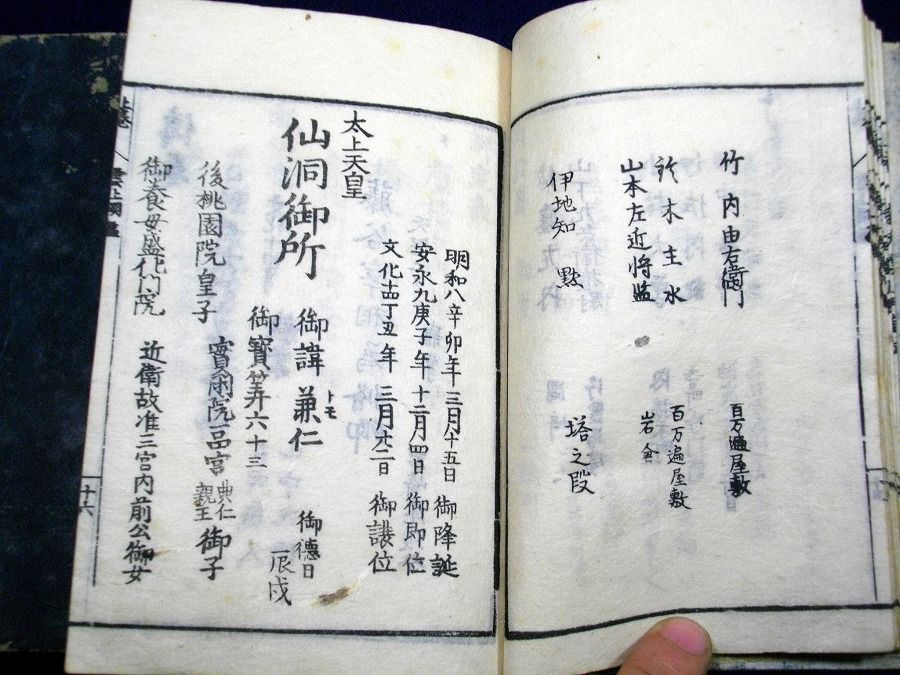 竹内由右衛門 百万遍屋敷
鈴木主水 百万遍屋敷
山本左近将監 岩倉
伊地知 黙 塔之段
太上天皇
仙洞御所
明和八辛卯年三月十五日 御降誕
安永九庚子年十二月四日 御即位
文化十四丁丑年三月廿二日 御譲位
御諱 兼仁
トモ
御徳日
辰戌
御寳筭六十三
後桃園院皇子
實閑院一品宮典仁親王御子
御養母盛化門院 近衛故准三宮内前公御女
雲上明鑑
十六